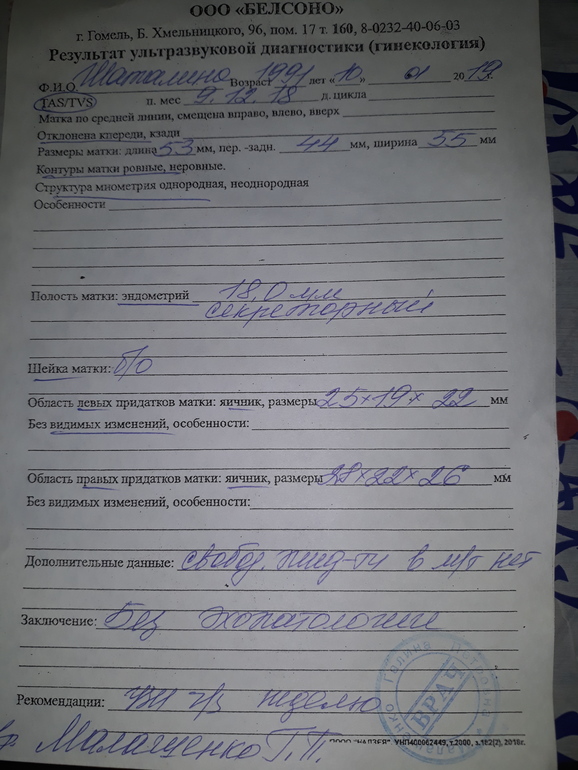 ООО «БЕЛСОНО»
г. Гомель, Б. Хмельницкого, 96, пом. 17 т. 160, 8-0232-40-06-03
Результат ультразвуковой диагностики (гинекология)
Ф.И.О. Шаталина Возраст 1991 лет «10» 01 2019.
TAS/TVS п. мес 9.12.18 д. цикла
Матка по средней линии, смещена вправо, влево, вверх
Отклонена кпереди, кзади
Размеры матки: длина 53 мм, пер. -задн. 44 мм, ширина 55 мм
Контуры матки ровные, неровные.
Структура миометрия однородная, неоднородная
Особенности
Полость матки: эндометрий 18,0 мм
секреторный
Шейка матки: б/о
Область левых придатков матки: яичник, размеры 25×19×22 мм
Без видимых изменений, особенности:
Область правых придатков матки: яичник, размеры 28×22×26 мм
Без видимых изменений, особенности:
Дополнительные данные: свобод. жид-ти в м/т нет
Заключение: Без эхопатологии
Рекомендации: УЗИ ч/з неделю
ВРАЧ
Малащенко Г.П.
ООО "НАДЗЕЯ", УНП400062449, т.2000, з.182(2), 2018г.